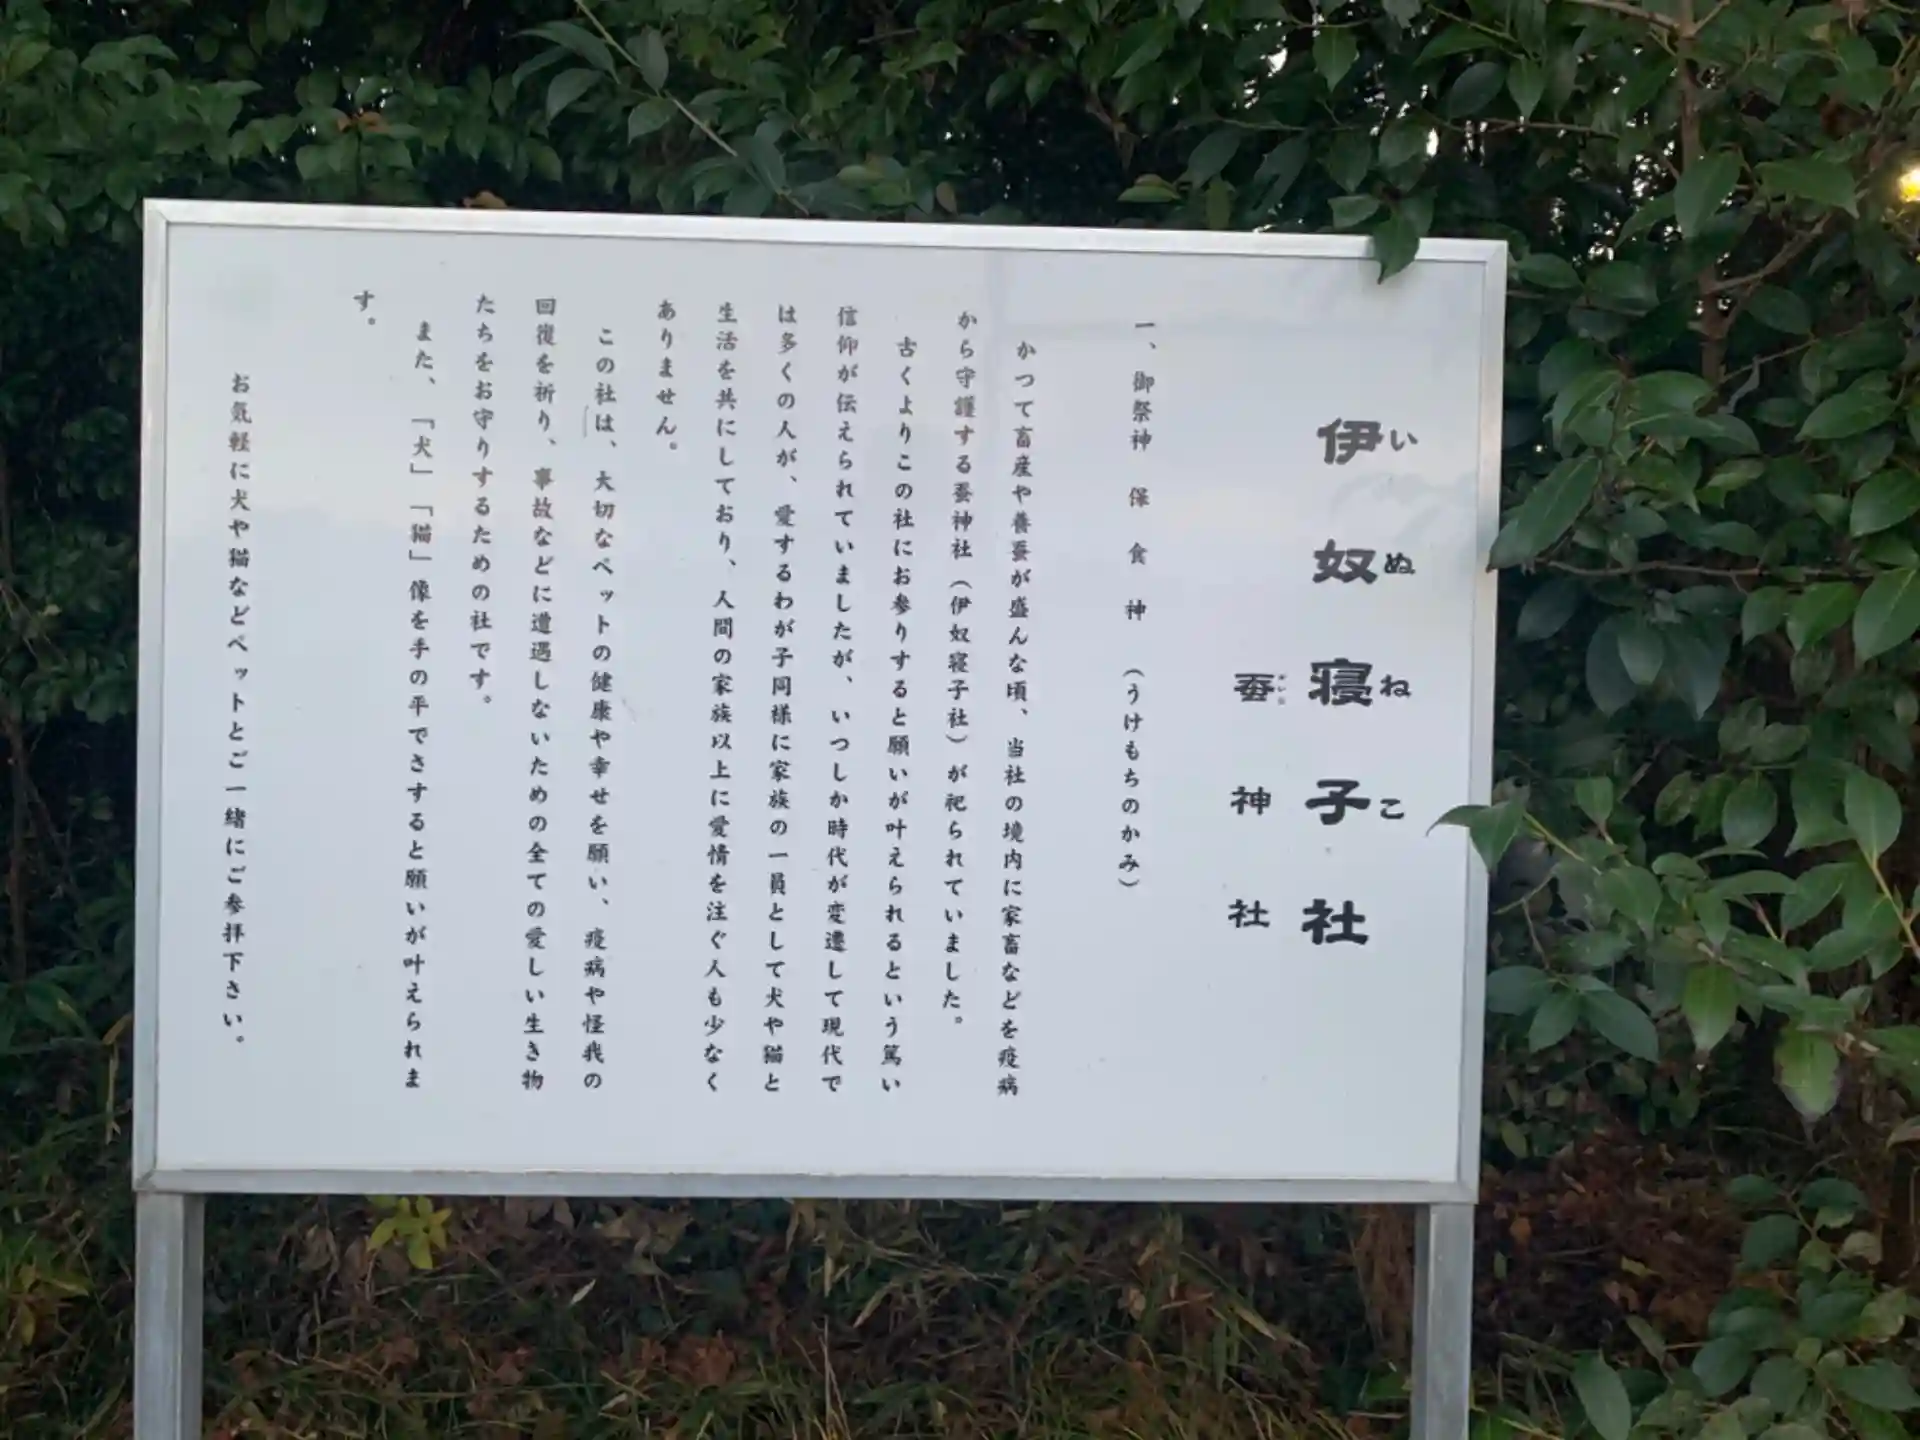 伊奴寝子社
いぬねこ
蚕神社
一、御祭神　保食神　（うけもちのかみ）
かつて畜産や養蚕が盛んな頃、当社の境内に家畜などを疫病
から守護する蚕神社（伊奴寝子社）が祀られていました。
古くよりこの社にお参りすると願いが叶えられるという篤い
信仰が伝えられていましたが、いつしか時代が変遷して現代で
は多くの人が、愛するわが子同様に家族の一員として犬や猫と
生活を共にしており、人間の家族以上に愛情を注ぐ人も少なく
ありません。
この社は、大切なペットの健康や幸せを願い、疫病や怪我の
回復を祈り、事故などに遭遇しないための全ての愛しい生き物
たちをお守りするための社です。
また、「犬」「猫」像を手の平でさすると願いが叶えられま
す。
お気軽に犬や猫などペットとご一緒にご参拝下さい。